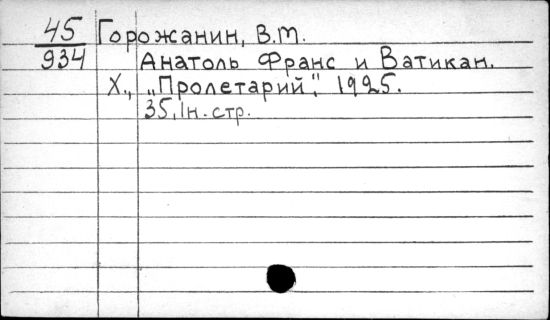 45 Горожанин, В.М.
934 Анатоль Франс и Ватикан.
Х., „Пролетарий". 1925.
35, 1н. стр.